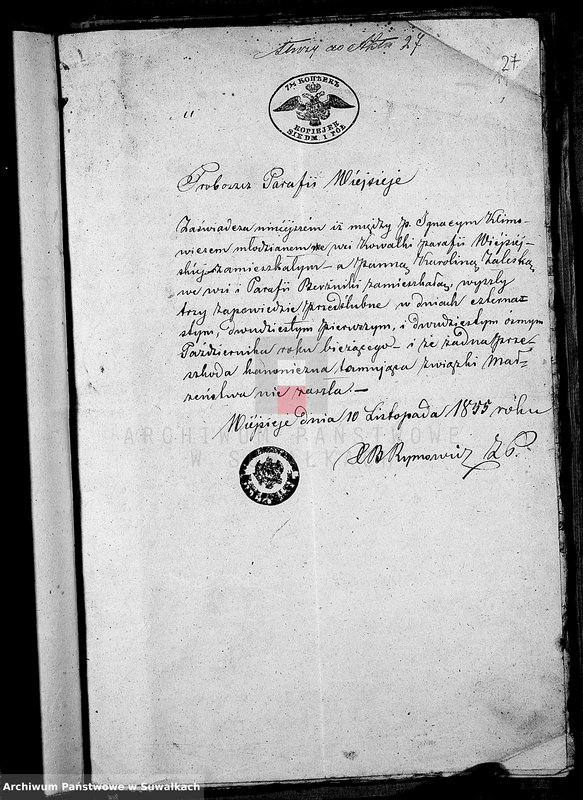 Służy do Aktu 27
27
7½ КОПѢЕКЪ
KOPIEJEK
SIEDM I PÓŁ
Proboszcz Parafii Wiejsieje
Zaświadcza niniejszém iż między p. Ignacym Klimo-
wiczem młodzianem we wsi Kowalki parafii Wiejsiej-
skiéj zamieszkałym – a Panną Karoliną Zaleską
we wsi i Parafii Berżniki zamieszkałą, wyszły
trzy zapowiedzie przedślubne w dniach czterna-
stym, dwudziestym pierwszym, i dwudziestym ósmym
Października roku bieżącego – i że żadna prze-
szkoda kanoniczna tamująca związki Mał-
żeństwa nie zaszła. –
Wiejsieje dnia 10 Listopada 1855 roku
XB Rymowicz
ARCHIWUM PAŃSTWOWE
W SUWAŁKACH
Archiwum Państwowe w Suwałkach